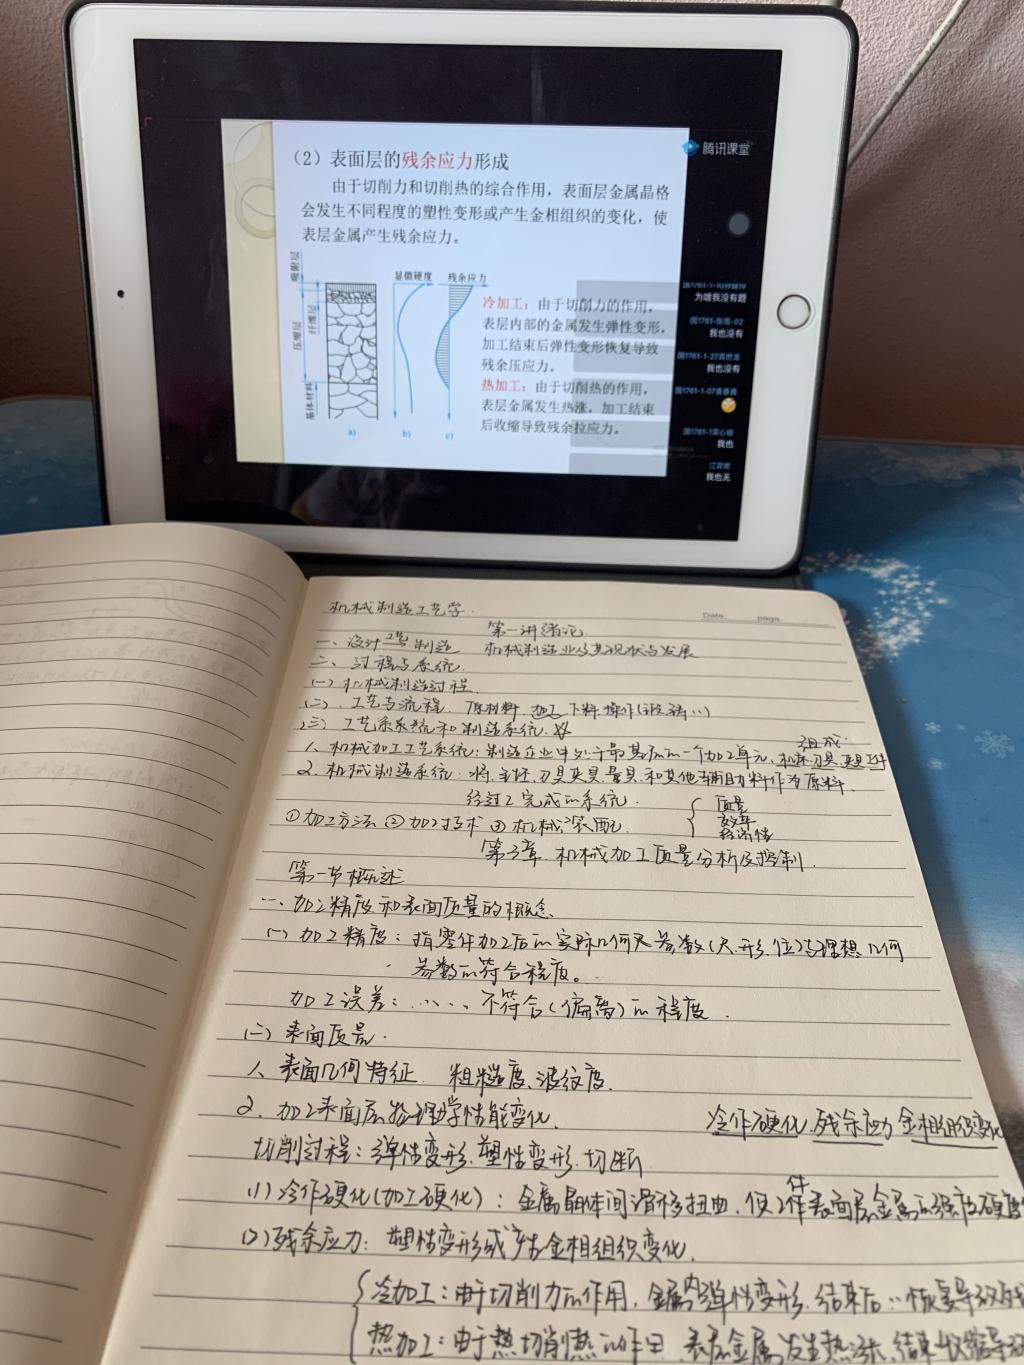 （2）表面层的残余应力形成
由于切削力和切削热的综合作用，表面层金属晶格
会发生不同程度的塑性变形或产生金相组织的变化，使
表层金属产生残余应力。
吸附层
压缩层
纤维层
基体材料
显微硬度
残余应力
a)
b)
c)
冷加工：由于切削力的作用，
表层内部的金属发生弹性变形，
加工结束后弹性变形恢复导致
残余压应力。
热加工：由于切削热的作用，
表层金属发生热涨，加工结束
后收缩导致残余拉应力。
腾讯课堂
为啥我没有题
我也没有
我也没有
我也
我也无
Date. page.
机械制造工艺学.
第一讲绪论
一、设计 工艺 制造 机械制造业及其现状与发展
二、过程与系统.
(一)机械制造过程.
(二).工艺与流程. 原材料
(三)工艺系系统和制造系统.
组成:
1、机械加工工艺系统：制造企业中处于最基层的一个加工单元、机床.刀具.夹具.工件
2、机械制造系统：将、毛坯、刀具夹具、量具、和其他辅助料作为原料.
经过 完成的系统.
①加工方法 ②加工技术 ③机械装配.
质量
效率
经济性
第3章 机械加工质量分析及控制.
第一节概述
一、加工精度和表面质量的概念.
(一)加工精度：指零件加工后的实际几何尺参数(尺.形.位)与理想几何
参数的符合程度。
加工误差：‥‥不符合(偏离)的程度.
(二)表面质量.
1、表面几何特征. 粗糙度、波纹度.
2、加工表面层物理力学性能变化. 冷作硬化.残余应力 金相组织变化
切削过程：弹性变形.塑性变形.切断
(1)冷作硬化(加工硬化)：金属晶体间滑移扭曲，使工件表面层金属的强度硬度
(2)残余应力：塑性变形或产生金相组织变化.
冷加工：由于切削力的作用，金属内弹性变形.结束后‥恢复导致残
热加工：由于热切削热的作用.表层金属发生热涨、结束收缩导致